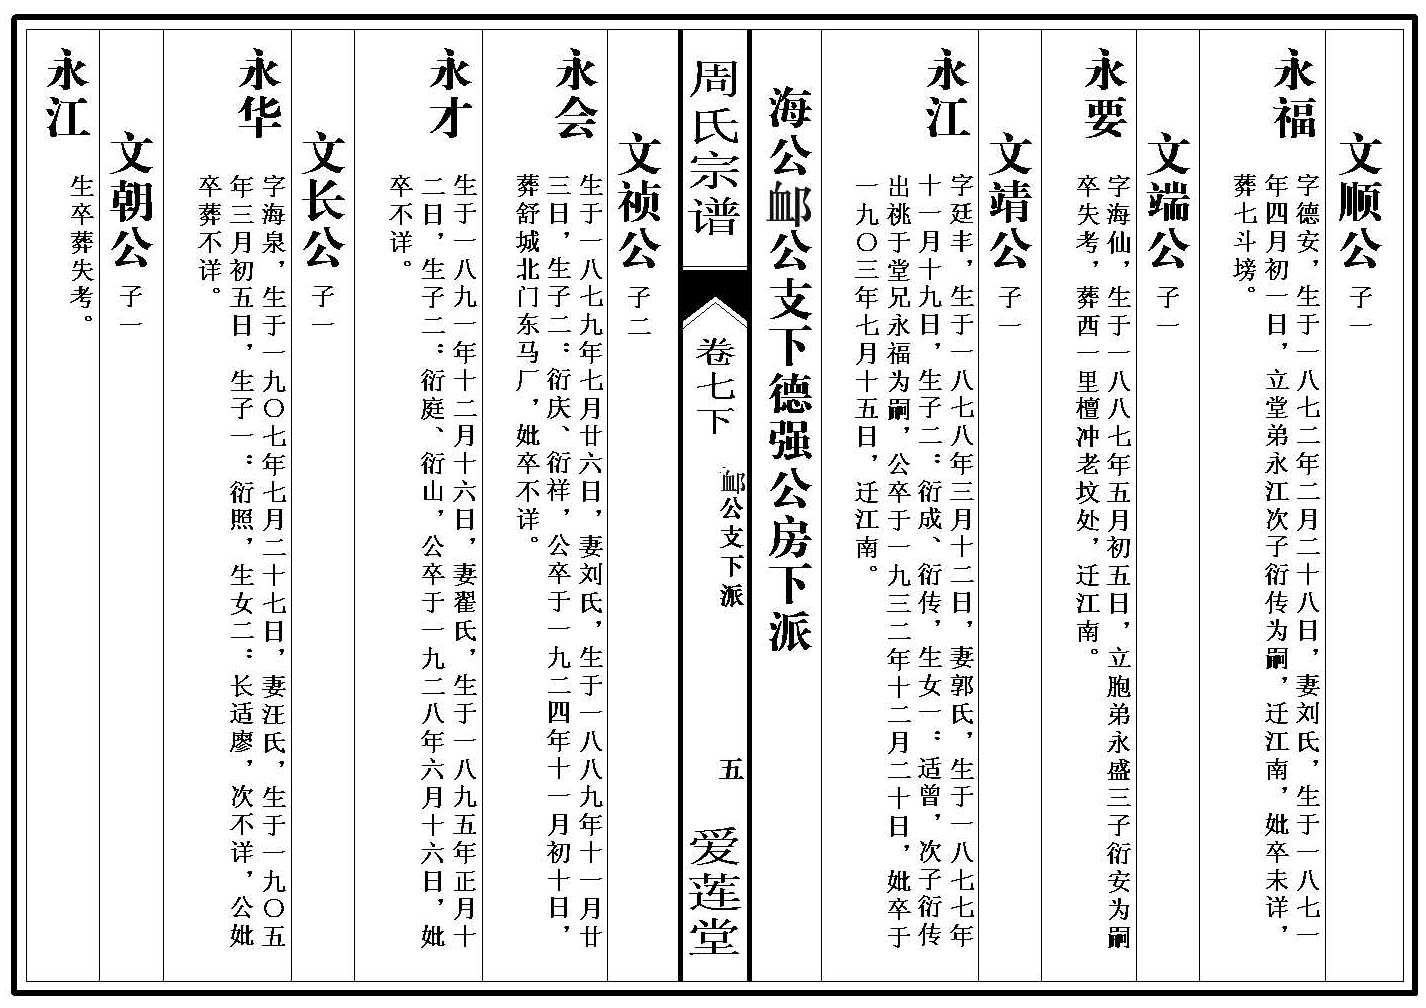 文顺公 子一
永福
字德安，生于一八七二年二月二十八日，妻刘氏，生于一八七一
年四月初一日，立堂弟永江次子衍传为嗣，迁江南，妣卒未详，
葬七斗塝。
文端公 子一
永要
字海仙，生于一八八七年五月初五日，立胞弟永盛三子衍安为嗣
卒失考，葬西一里檀冲老坟处，迁江南。
文靖公 子一
永江
字廷丰，生于一八七八年三月十二日，妻郭氏，生于一八七七年
十一月十九日，生子二：衍成、衍传，生女一：适曾，次子衍传
出祧于堂兄永福为嗣，公卒于一九三二年十二月二十日，妣卒于
一九〇三年七月十五日，迁江南。
海公䘏公支下德强公房下派
周氏宗谱
卷七下
䘏公支下派
五
爱莲堂
文祯公 子二
永会
生于一八七九年七月廿六日，妻刘氏，生于一八八九年十一月廿
三日，生子二：衍庆、衍祥，公卒于一九二四年十一月初十日，
葬舒城北门东马厂，妣卒不详。
永才
生于一八九一年十二月十六日，妻翟氏，生于一八九五年正月十
二日，生子二：衍庭、衍山，公卒于一九二八年六月十六日，妣
卒不详。
文长公 子一
永华
字海泉，生于一九〇七年七月二十七日，妻汪氏，生于一九〇五
年三月初五日，生子一：衍照，生女二：长适廖，次不详，公妣
卒葬不详。
文朝公 子一
永江
生卒葬失考。